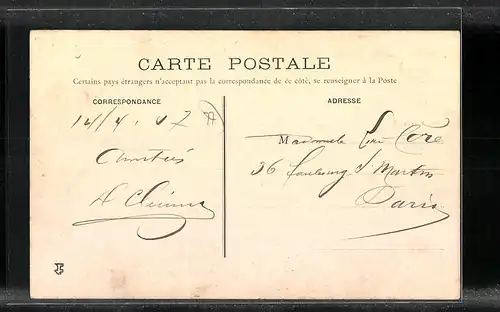 CARTE POSTALE
Certains pays étrangers n'acceptant pas la correspondance de ce côté, se renseigner à la Poste
CORRESPONDANCE
ADRESSE
14/4.07
Amitiés
Mademoiselle
36 Faubourg St Martin
Paris